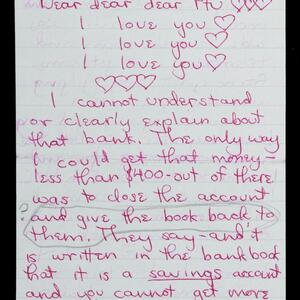 Dear dear dear
I love you ♡
I love you ♡
I love you ♡
♡♡♡
I cannot understand
or clearly explain about
that bank. The only way
I could get that money—
less than $400-out of there
was to close the account
and give the book back to
them. They say—and it
is written in the bankbook
that it is a savings account
and you cannot get more